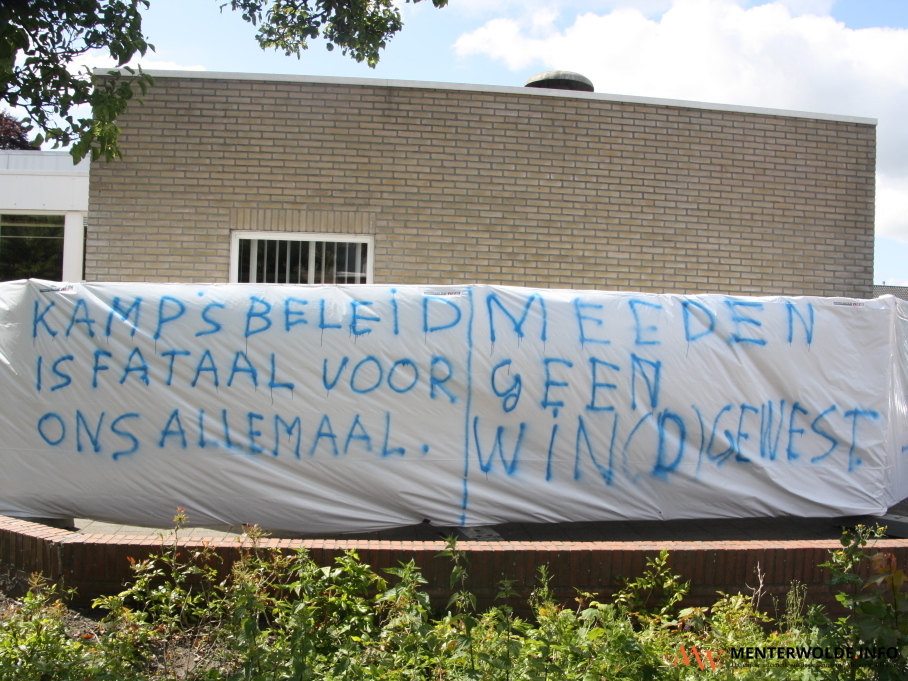 KAMP'S BELEID
IS FATAAL VOOR
ONS ALLEMAAL.
MEEDEN
GEEN
WIN(D)GEWEST.
MENTERWOLDE.INFO